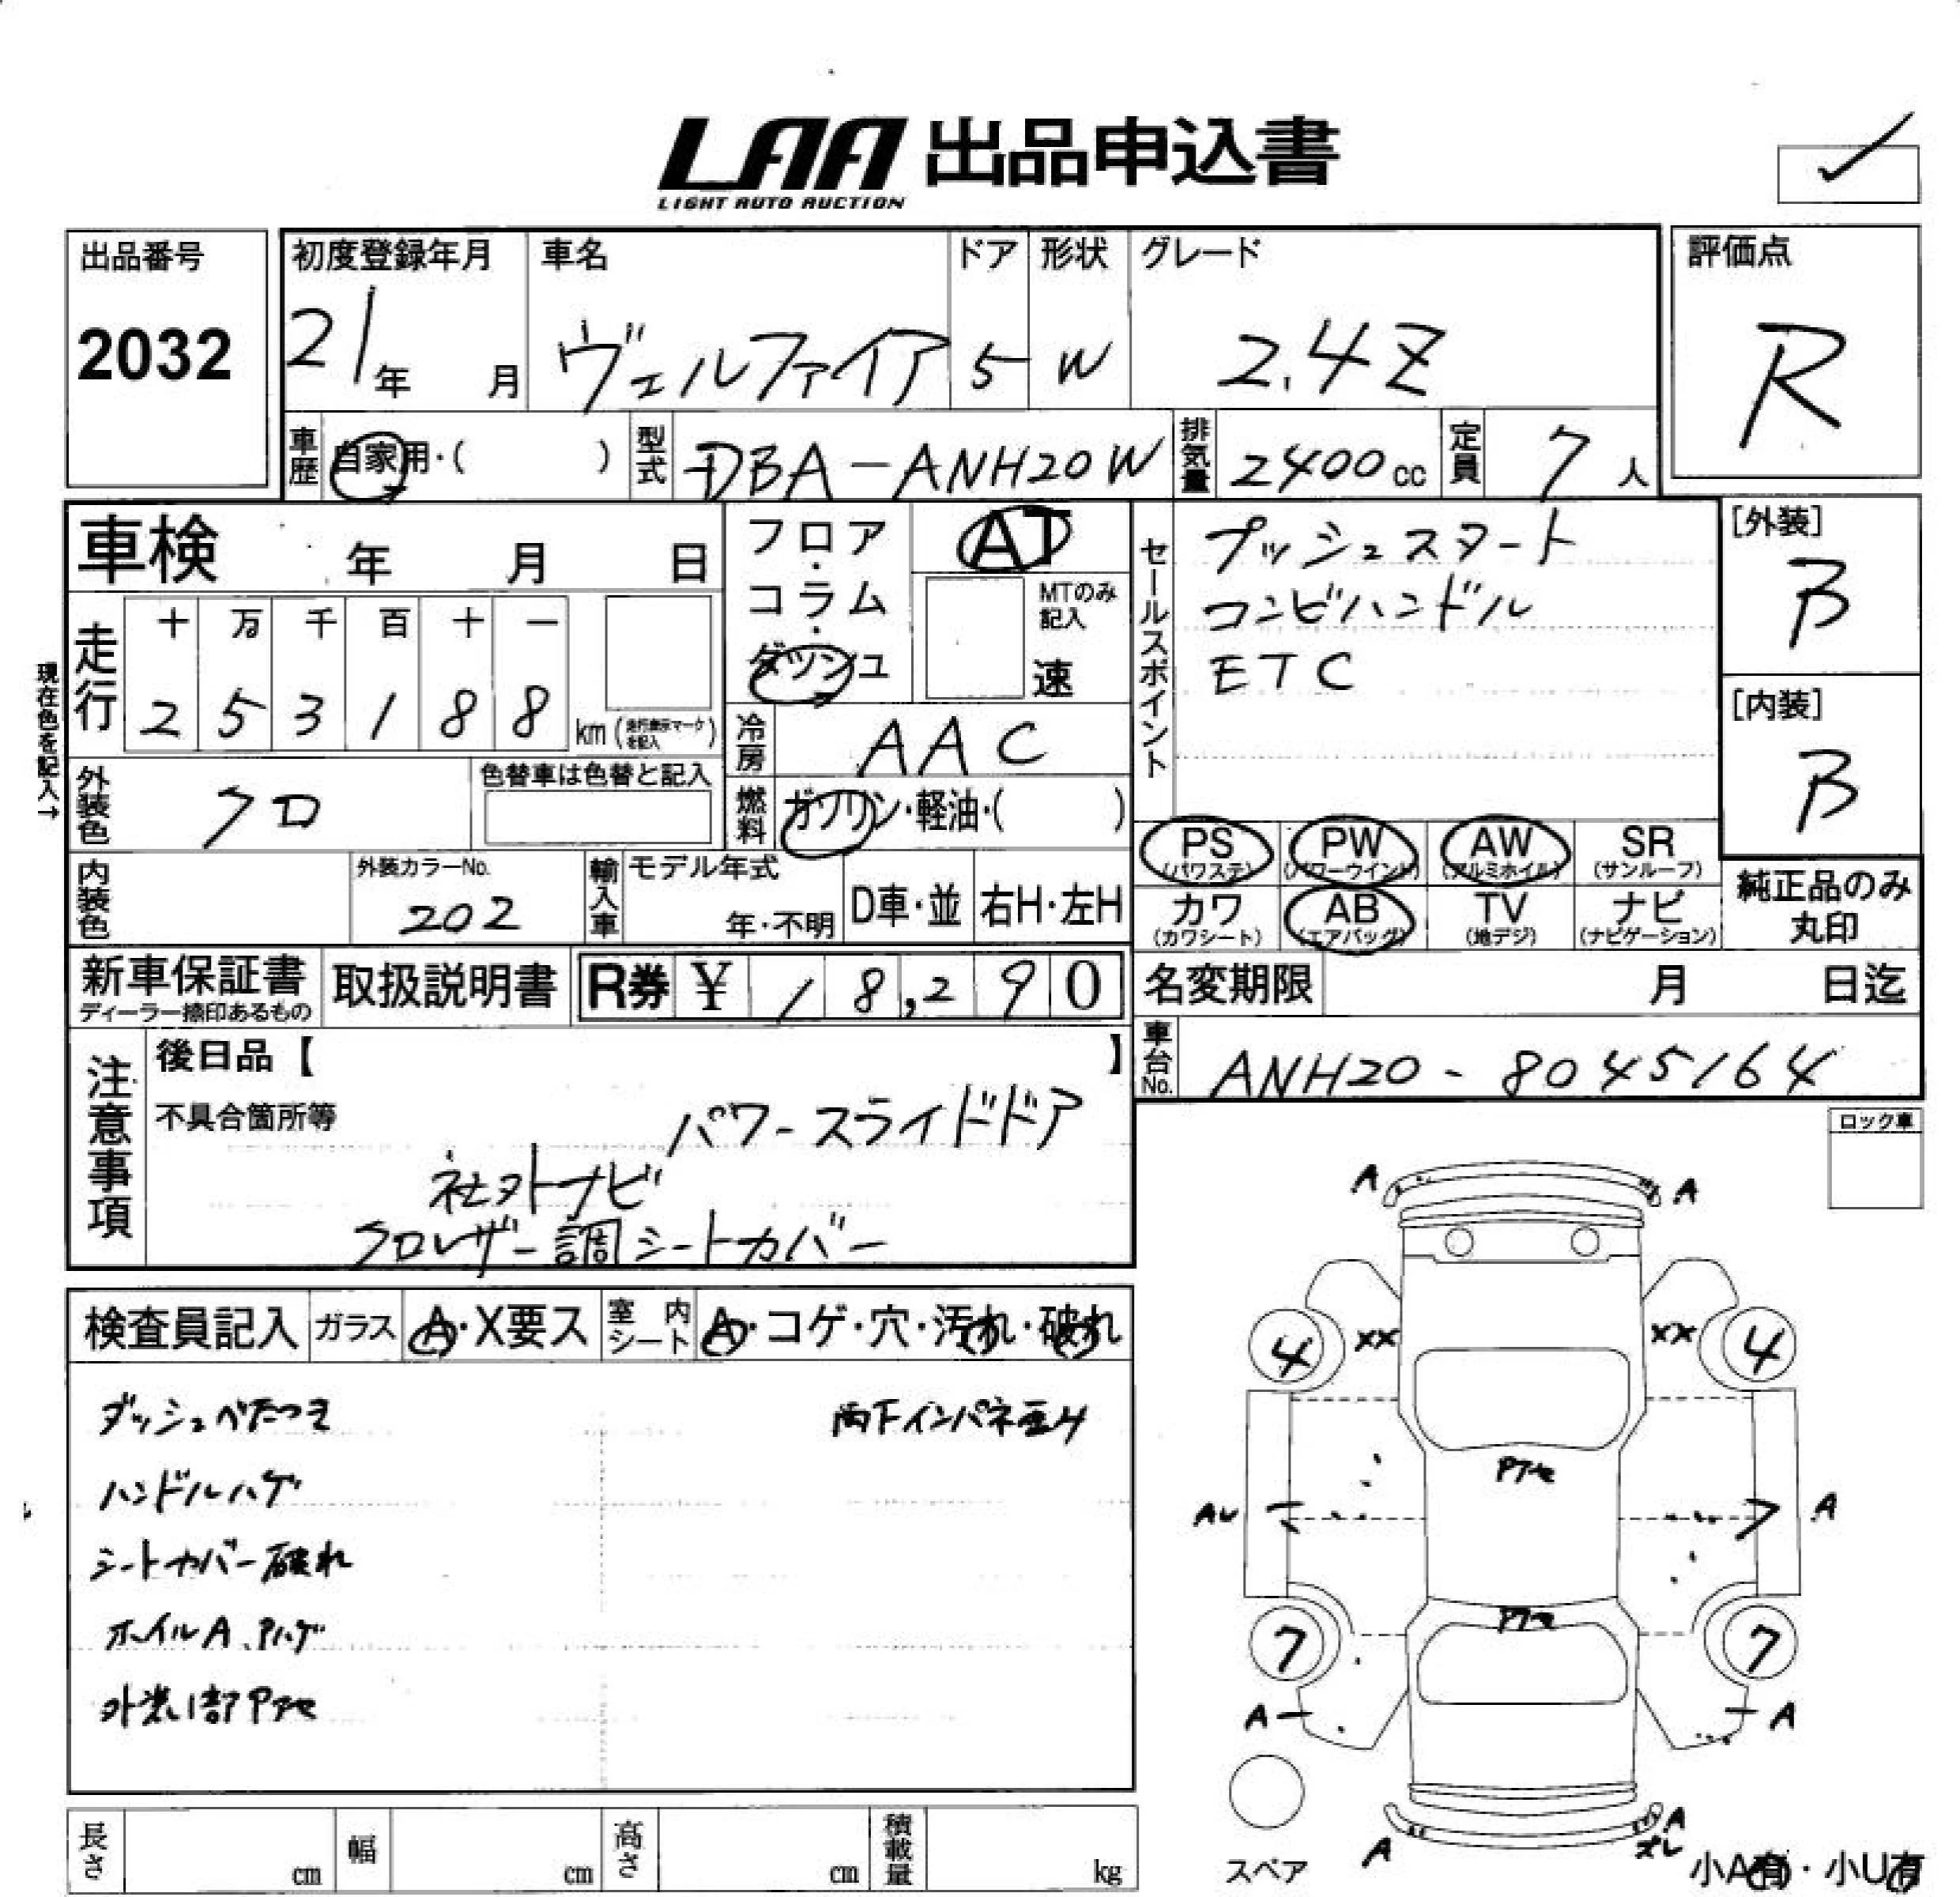 LAA 出品申込書
LIGHT AUTO AUCTION
出品番号
2032
初度登録年月
21年 月
車名
ヴェルファイア
ドア
5
形状
W
グレード
2.4Z
評価点
R
車歴
自家用・( )
型式
DBA-ANH20W
排気量
2400cc
定員
7人
車検 年 月 日
現在色を記入→
走行
十 万 千 百 十 一
2 5 3 1 8 8 km (走行表示マークを記入)
フロア・コラム・ダッシュ
AT
MTのみ記入
速
冷房
AAC
セールスポイント
プッシュスタート
コンビハンドル
ETC
[外装]
B
[内装]
B
外装色
クロ
色替車は色替と記入
燃料
ガソリン・軽油・( )
PS (パワステ)
PW (パワーウインド)
AW (アルミホイル)
SR (サンルーフ)
カワ (カワシート)
AB (エアバッグ)
TV (地デジ)
ナビ (ナビゲーション)
純正品のみ
丸印
内装色
外装カラーNo.
202
輸入車
モデル年式
年・不明
D車・並
右H・左H
新車保証書
ディーラー捺印あるもの
取扱説明書
R券 ¥ 18,290
名変期限 月 日迄
車台No.
ANH20-8045164
注意事項
後日品【 】
不具合箇所等
パワースライドドア
社外ナビ
クロレザー調シートカバー
ロック車
検査員記入
ガラス
A・X要ス
室内シート
A・コゲ・穴・汚れ・破れ
ダッシュベたつき
両下インパネ歪み
ハンドルハゲ
シートカバー破れ
ホイルA、Pハゲ
外装1部Pアセ
A A
4 XX XX 4
Pアセ
AU A
Pアセ
7 7
A A
A A
ズレ
スペア
小A有・小U有
長さ cm
幅 cm
高さ cm
積載量 kg